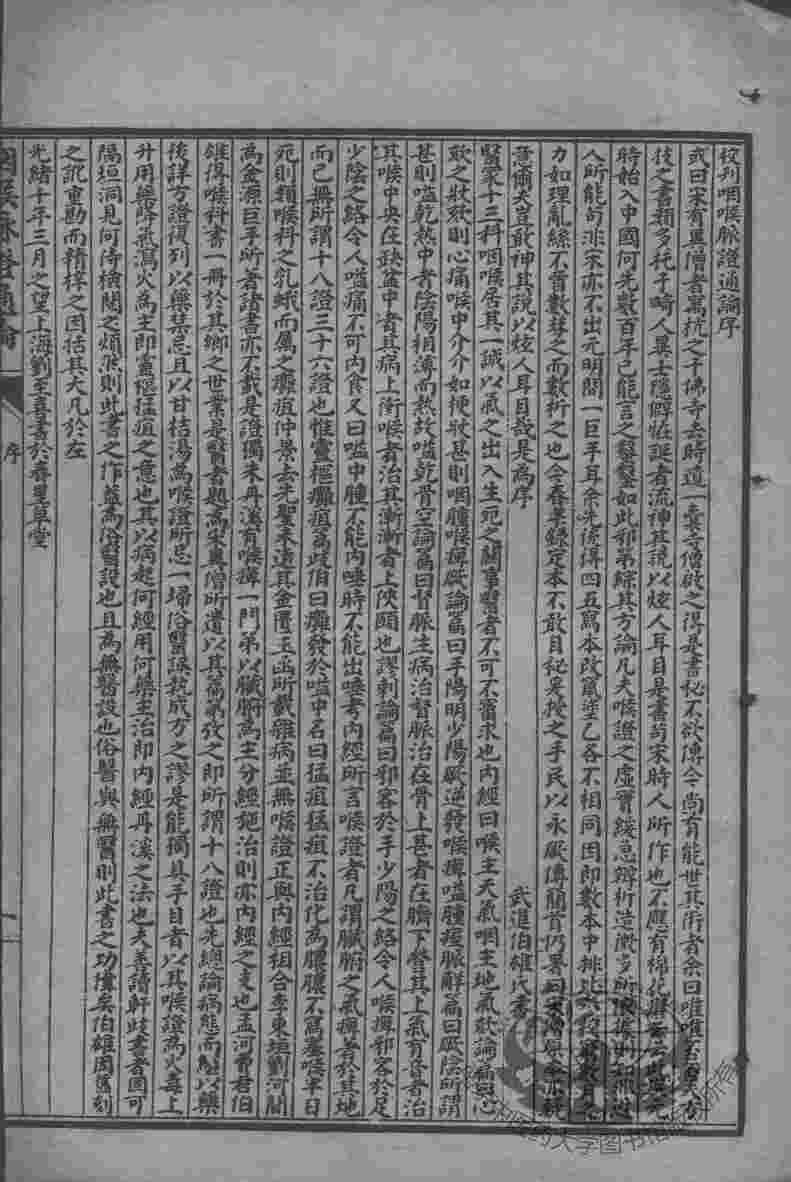 校刊咽喉脈證通論序
或曰宋有異僧者寓杭之千佛寺去時遺一囊寺僧啟之得是書秘不欲傳今尚有能世其術者余曰唯唯否否
技之書類多托于畸人異士隱僻怪誕者流神其説以炫人耳目是書苟宋時人所作也不應有棉花瘡
時始入中國何先數百年已能言之鑿鑿如此邪第綜其方論凡夫喉證之虛實緩急辨析造微多所
人所能句非宋亦不出元明間一巨手耳余先後得四五寫本改竄塗乙各不相同因即數本中排比
力如理亂絲不啻數棼之而數析之也今春業錄定本不敢自秘爰授之手民以永厥傳簡首仍署曰宋僧
意爾夫豈敢神其説以炫人耳目哉是為序
武進伯雄氏書
醫家十三科咽喉居其一誠以氣之出入生死之關事醫者不可不審求也内經曰喉主天氣咽主地氣欬論篇曰心
欬之狀欬則心痛喉中介介如梗狀甚則咽腫喉痺厥論篇曰手陽明少陽厥逆發喉痺嗌腫痙脈解篇曰厥陰所謂
甚則嗌乾熱中者陰陽相薄而熱故嗌乾骨空論篇曰督脈生病治督脈治在骨上甚者在臍下營其上氣有音者治
其喉中央在缺盆中者其病上衝喉者治其漸漸者上俠頤也謬刺論篇曰邪客於手少陽之絡令人喉痺邪客於足
少陰之絡令人嗌痛不可内食又曰嗌中腫不能内唾時不能出唾考内經所言喉證者凡謂臟腑之氣痺著於其地
而已無所謂十八證三十六證也惟靈樞癰疽篇岐伯曰癰發於嗌中名曰猛疽猛疽不治化為膿膿不寫塞喉半日
死則類喉科之乳蛾而屬之癰疽仲景去先聖未遠其金匱玉函所載雜病並無喉證正與内經相合李東垣劉河間
為金源巨手所著諸書亦不載是證獨朱丹溪有喉痺一門第以臟腑為主分經施治則亦内經之支也孟河費君伯
雄得喉科書一冊於其鄉之世業是醫者題為宋異僧所遺以其篇第攷之即所謂十八證也先總論病態而繼以藥
後詳方證復列以藥禁忌且以甘桔湯為喉證所忌一埽俗醫誤執成方之謬是能獨具手目者以其喉證為火毒上
升用藥降氣瀉火為主即靈樞猛疽之意也其以病起何經用何藥主治即内經丹溪之法也夫善讀軒岐書者固可
隔垣洞見何待檢閱之煩然則此書之作蓋為俗醫設也且為無醫設也俗醫與無醫則此書之功偉矣伯雄因舊刻
之訛重勘而精梓之因括其大凡於左
光緒十年三月之望上海劉至喜書於春星草堂
咽喉脉證通論
序
一